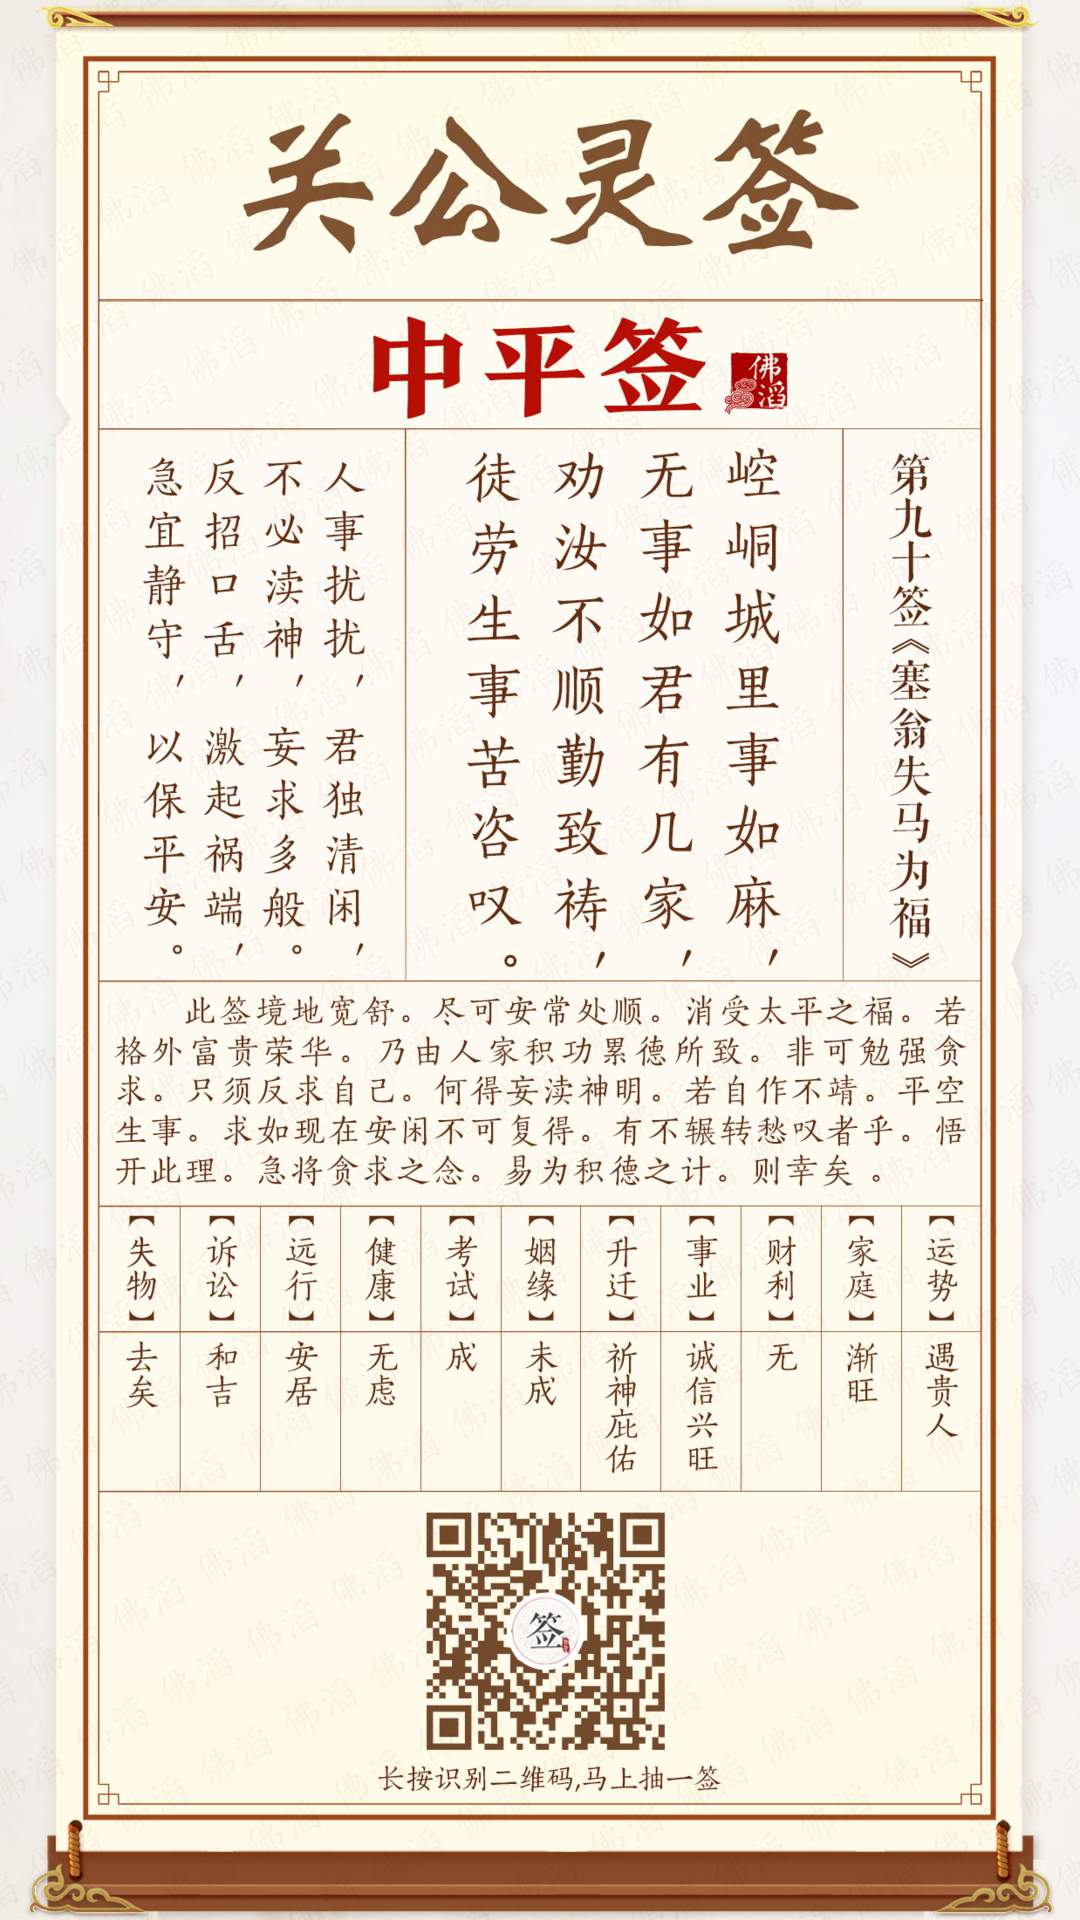 关公灵签
中平签
佛滔
第九十签《塞翁失马为福》
崆峒城里事如麻，
无事如君有几家，
劝汝不顺勤致祷，
徒劳生事苦咨叹。
人事扰扰，君独清闲，
不必渎神，妄求多般。
反招口舌，激起祸端，
急宜静守，以保平安。
此签境地宽舒。尽可安常处顺。消受太平之福。若
格外富贵荣华。乃由人家积功累德所致。非可勉强贪
求。只须反求自己。何得妄渎神明。若自作不靖。平空
生事。求如现在安闲不可复得。有不辗转愁叹者乎。悟
开此理。急将贪求之念。易为积德之计。则幸矣 。
【运势】遇贵人
【家庭】渐旺
【财利】无
【事业】诚信兴旺
【升迁】祈神庇佑
【姻缘】未成
【考试】成
【健康】无虑
【远行】安居
【诉讼】和吉
【失物】去矣
签
长按识别二维码,马上抽一签